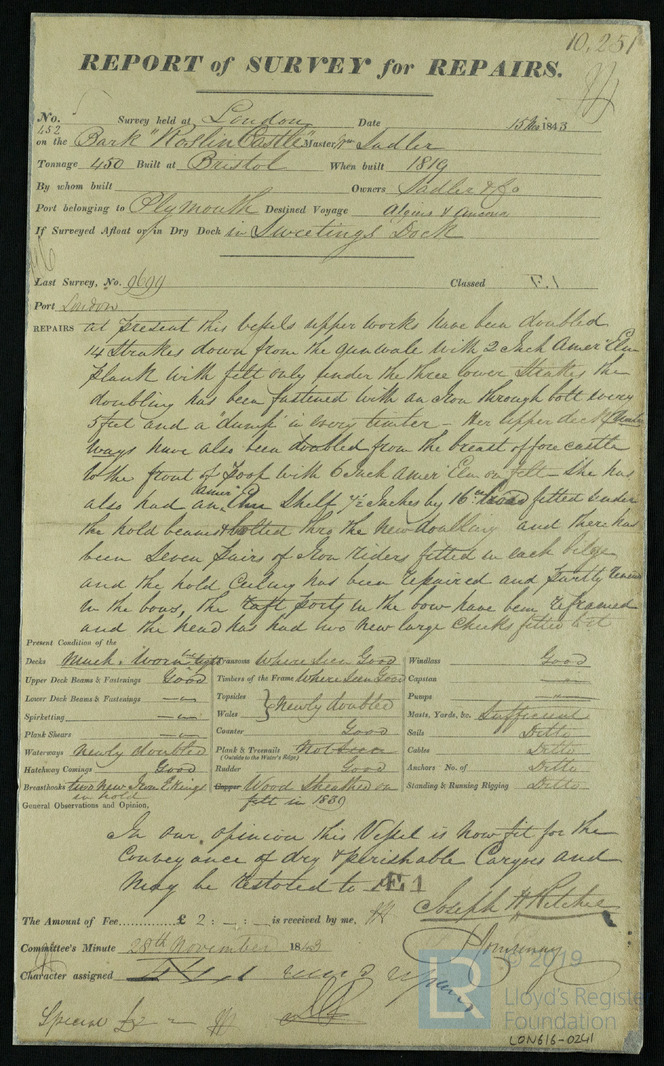 10,251
REPORT of SURVEY for REPAIRS.
No. 452 Survey held at London Date 15 Nov 1843
on the Bark "Roslin Castle" Master Wm Sadler
Tonnage 450 Built at Bristol When built 1819
By whom built Owners Sadler & Co
Port belonging to Plymouth Destined Voyage Algiers & Ancona
If Surveyed Afloat or in Dry Dock in Sweetings Dock
Last Survey, No. 9699 Classed Æ.1
Port London
REPAIRS at present this vessels upper works have been doubled
14 Strakes down from the gunwale with 2 Inch Amer Elm
plank with felt only under the three lower Strakes the
doubling has been fastened with an Iron through bolt every
5 feet and a "dump" in every timber – Her upper deck Water
Ways have also been doubled from the breast of forecastle
to the front of Poop with 6 Inch Amer Elm on felt – She has
also had an Amer Elm Shelf 7½ Inches by 16 fitted under
the hold beams & bolted thro the new doubling and there has
been Seven pairs of Iron Riders fitted in each bilge
and the hold Ceiling has been repaired and partly renewed
in the bows, the raft ports in the bow have been reframed
and the head has had two new large Cheeks fitted to it
Present Condition of the
Decks Much worn but tight
Upper Deck Beams & Fastenings Good
Lower Deck Beams & Fastenings –"–
Spirketting –"–
Plank Shears –"–
Waterways newly doubled
Hatchway Comings Good
Breasthooks two new Iron Ekings in hold
Transoms Where Seen Good
Timbers of the Frame Where Seen Good
Topsides
Wales } Newly doubled
Counter Good
Plank & Treenails Not Seen
(Outside to the Water's Edge)
Rudder Good
Copper Wood Sheathed on
felt in 1839
Windlass Good
Capstan –"–
Pumps –"–
Masts, Yards, &c. Sufficient
Sails Ditto
Cables Ditto
Anchors No. of Ditto
Standing & Running Rigging Ditto
General Observations and Opinion,
In our opinion this Vessel is now fit for the
Conveyance of dry & perishable Cargoes and
may be restored to Æ1
The Amount of Fee.............. £ 2 : – : – is received by me,
Joseph H Ritchie
Committee's Minute 28th November 1843
Character assigned
Special £2
© 2019
LR
Lloyd's Register
Foundation
LON616-0241